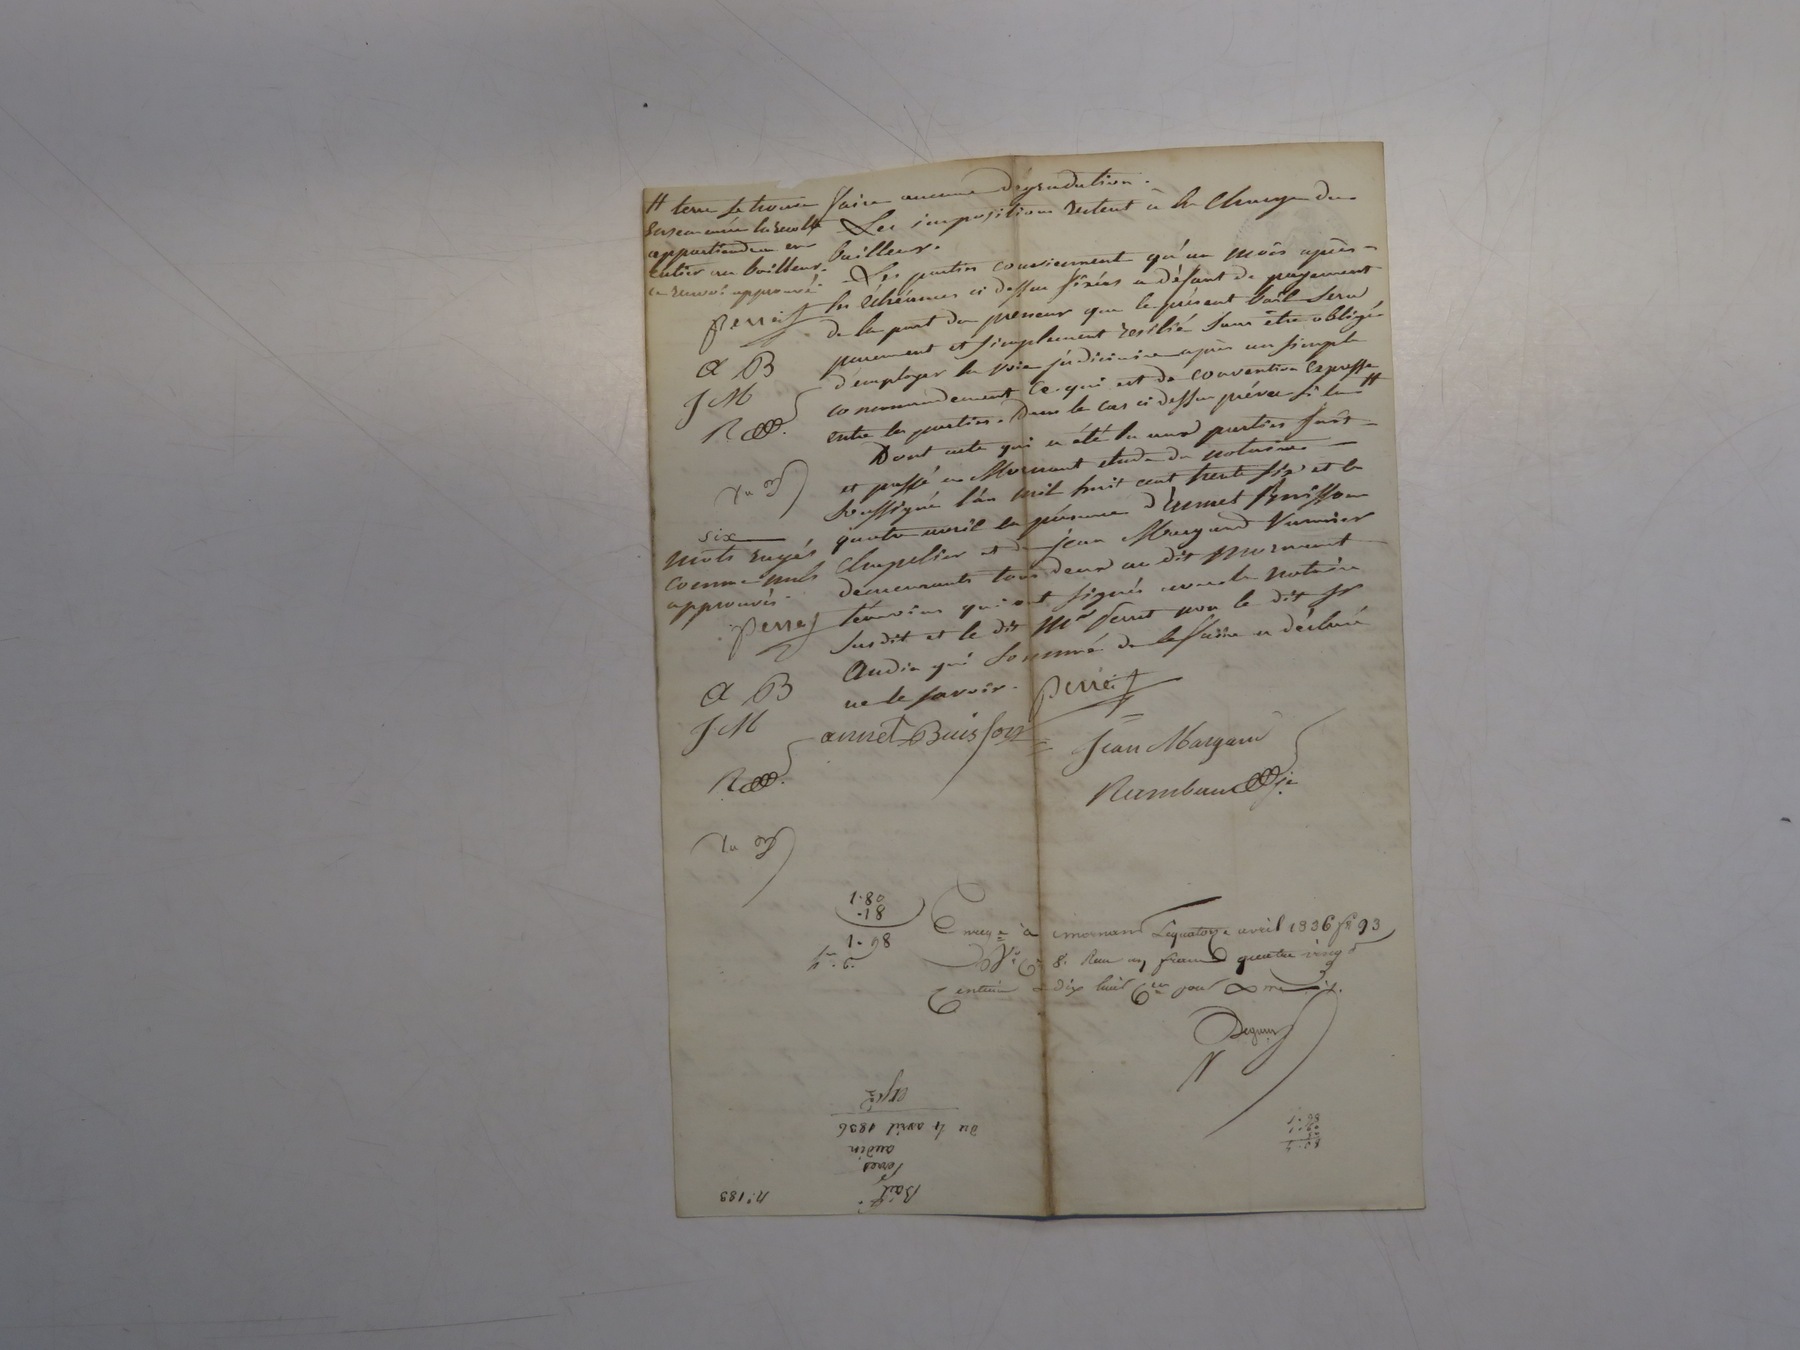 faire aucune dégradation.
Les impositions restent à la charge du
bailleur.
Les parties conviennent qu'un mois après
les échéances ci dessus fixées a défaut de payement
de la part du preneur que le présent bail sera
purement et simplement resilié sans être obligé
d'employer la voie judiciaire après un simple
commandement ce qui est de convention expresse
entre les parties. Dans le cas ci dessus prévu si la #
Dont acte qui a été lu aux parties fait
et passé à Mornant étude du notaire
soussigné l'an mil huit cent trente six et le
quatre avril en présence d'Annet Buisson
Chapelier et de Jean Margand
demeurants tous deux au dit Mornant
témoins qui ont signés avec le notaire
susdit et le dit Mr Perret non le dit Sr
Audin qui sommé de le faire a déclaré
ne le savoir.
# terre se trouve
ensemencée la recolte
appartiendra en
entier au bailleur.
ce renvoi approuvé
Perret
A B
J M
R
six
mots rayés
comme nuls
approuvés.
Perret
A B
J M
R
Perret
annet Buisson
Jean Margand
Rambaud
1.80
.18
1.98
Enreg à Mornant Le quatorze avril 1836 f° 93
V° C 8. Reçu un franc quatre vingt
centimes dix huit Cen pour
N° 188
Bail
Perret
audin
du 4 avril 1836